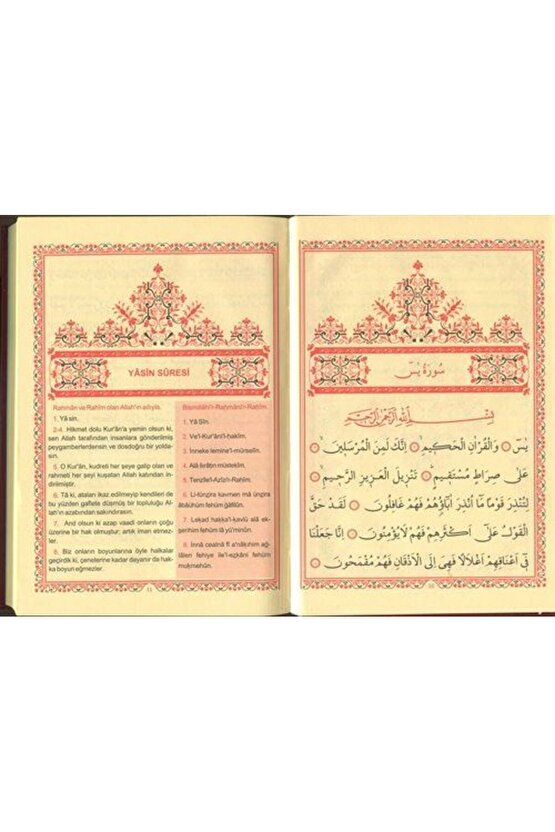 YÂSİN SÛRESİ
Rahmân ve Rahîm olan Allah'ın adıyla.
1. Yâ sîn.
2-4. Hikmet dolu Kur'ân'a yemin olsun ki,
sen Allah tarafından insanlara gönderilmiş
peygamberlerdensin ve dosdoğru bir yolda-
sın.
5. O Kur'ân, kudreti her şeye galip olan ve
rahmeti her şeyi kuşatan Allah katından in-
dirilmiştir.
6. Tâ ki, ataları ikaz edilmeyip kendileri de
bu yüzden gaflete düşmüş bir topluluğu Al-
lah'ın azabından sakındırasın.
7. And olsun ki azap vaadi onların çoğu
üzerine bir hak olmuştur; artık iman etmez-
ler.
8. Biz onların boyunlarına öyle halkalar
geçirdik ki, çenelerine kadar dayanır da hak-
ka boyun eğmezler.
Bismillâhi'r-Raḥmâni'r-Raḥîm.
1. Yâ Sîn.
2. Ve'l-Kur'âni'l-ḥakîm.
3. İnneke lemine'l-mürselîn.
4. Alâ ṡırâṭın müsteḳîm.
5. Tenzîle'l-Azîzi'r-Raḥîm.
6. Li-tünẕira ḳavmen mâ ünẕira
âbâühüm fehüm ġâfilûn.
7. Leḳad ḥaḳḳa'l-ḳavlü alâ ek-
s̱erihim fehüm lâ yü'minûn.
8. İnnâ cealnâ fî a'nâḳıhim aġ-
lâlen fehiye ile'l-eẕḳâni fehüm
muḳmeḥûn.
11
سُورَةُ يٰسٓ
بِسْمِ اللّٰهِ الرَّحْمٰنِ الرَّحِيمِ
يٰسٓ ۝ وَالْقُرْاٰنِ الْحَكِيمِ ۝ اِنَّكَ لَمِنَ الْمُرْسَلِينَ ۝
عَلٰى صِرَاطٍ مُسْتَقِيمٍ ۝ تَنْزِيلَ الْعَزِيزِ الرَّحِيمِ ۝
لِتُنْذِرَ قَوْمًا مَٓا اُنْذِرَ اٰبَٓاؤُهُمْ فَهُمْ غَافِلُونَ ۝ لَقَدْ حَقَّ
الْقَوْلُ عَلٰٓى اَكْثَرِهِمْ فَهُمْ لَا يُؤْمِنُونَ ۝ اِنَّا جَعَلْنَا
فِٓى اَعْنَاقِهِمْ اَغْلَالًا فَهِىَ اِلَى الْاَذْقَانِ فَهُمْ مُقْمَحُونَ ۝